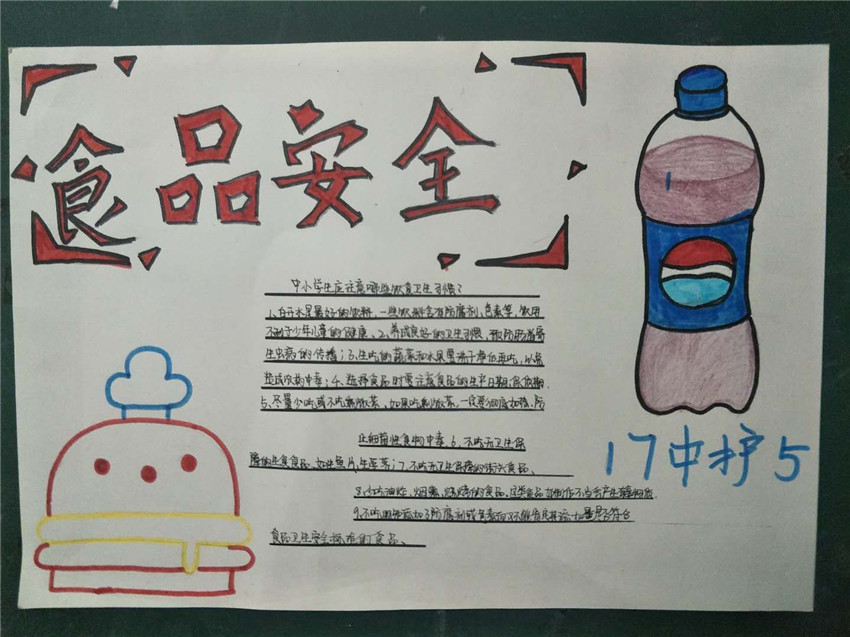 食品安全
中小学生应注意哪些饮食卫生习惯?
1、白开水是最好的饮料,一些饮料含有防腐剂、色素等,饮用
不利于少年儿童的健康、2、养成良好的卫生习惯,预防肠道寄
生虫病的传播;3、生吃的蔬菜和水果要洗干净后再吃,以免
造成农药中毒;4、选择食品时要注意食品的生产日期、保质期
5、尽量少吃或不吃剩饭菜、如果吃剩饭菜,一定要彻底加热、防
止细菌性食物中毒 6、不吃无卫生保
障的生食食品、如生鱼片、生荸荠;7、不吃无卫生保障的街头食品、
8、少吃油炸、烟熏、烧烤的食品、这类食品如制作不当会产生有毒物质.
9、不吃
食品卫生安全标准的食品、
17中护5